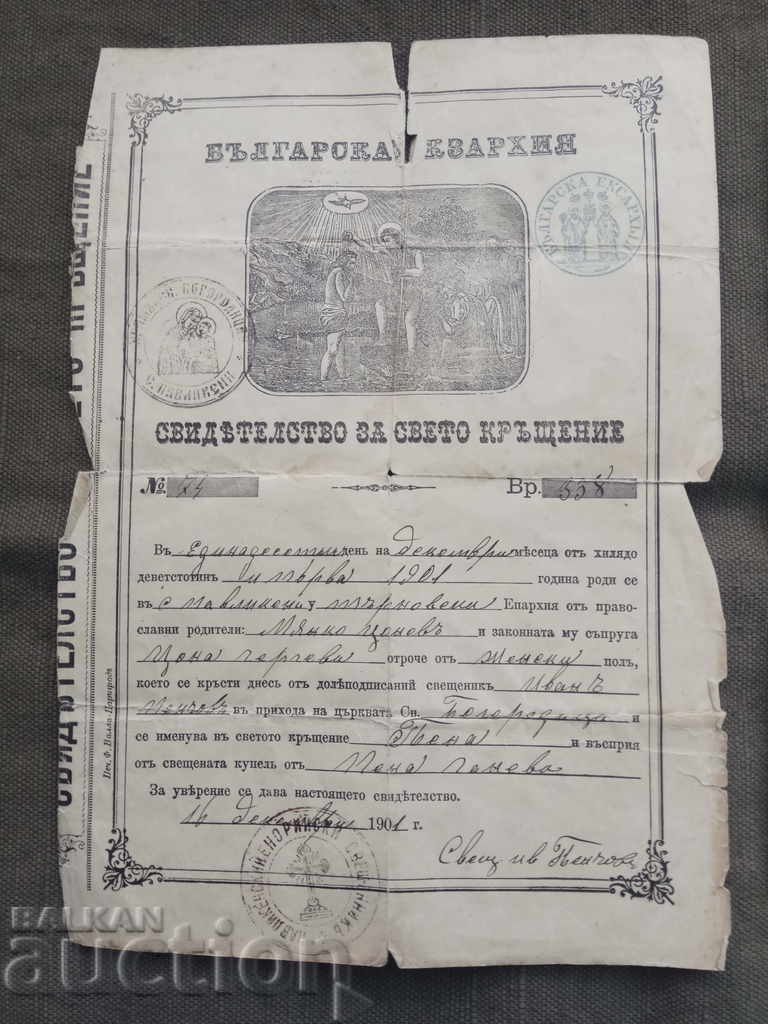 БЪЛГАРСКА ЕКЗАРХИЯ
БЪЛГАРСКА ЕКСАРХЫЯ
СВИДѢТЕЛСТВО ЗА СВЕТО КРЪЩЕНИЕ
№ 74 Бр. 338
Въ Единадесетий день на Декемврий мѣсеца отъ хилядо
деветстотинъ и първа 1901 година роди се
въ с. Павликени у търновски Епархия отъ право-
славни родители: Мянко Цоневъ и законната му съпруга
Цона Гергева отроче отъ Женски полъ,
което се кръсти днесь отъ долѣподписаний свещеникъ Иванъ
Пенчовъ въ прихода на църквата Св. Богородица и
се именува въ светото кръщение Пена и въсприя
отъ свещената купель отъ Пена Ганева
За увѣрение се дава настоящето свидѣтелство.
16 Декемврий 1901 г.
Свещ Ив Пенчовъ
СВИДѢТЕЛСТВО
КРЪЩЕНИЕ
Печ. Ф. Валла-Цариградъ
BALKAN
auction